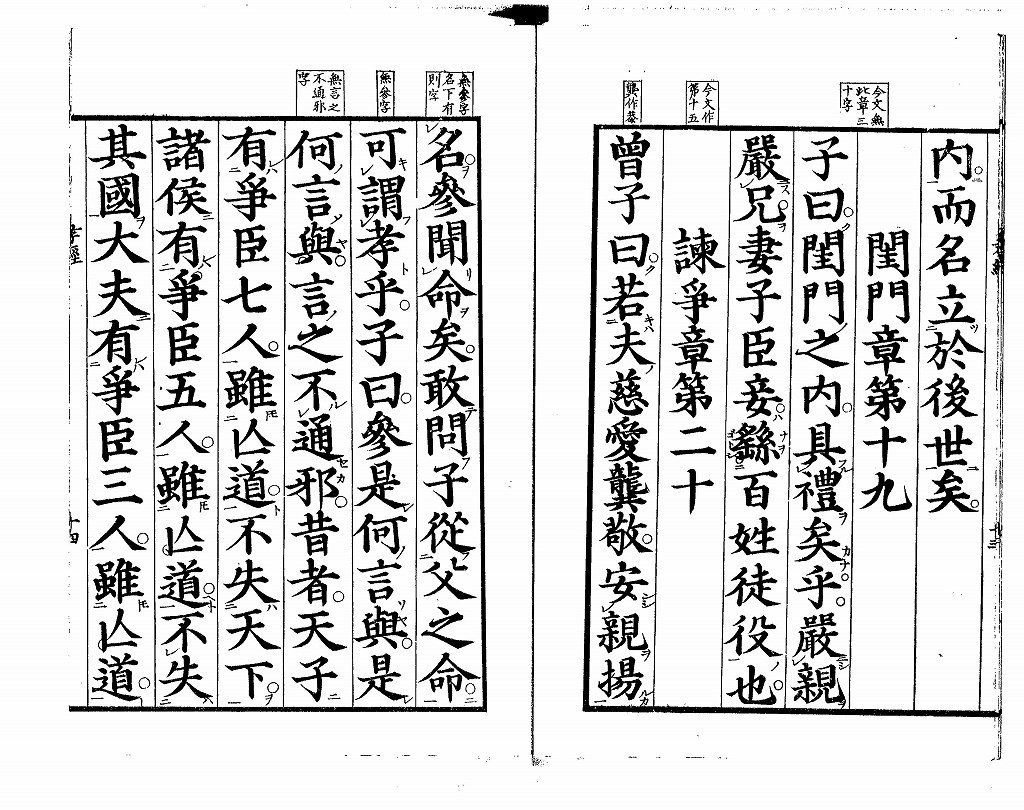 今文無此章三十字
今文作第十五
龔作恭
内而名立於後世矣
閨門章第十九
子曰閨門之内具禮矣乎嚴親
嚴兄妻子臣妾繇百姓徒役也
諫爭章第二十
曾子曰若夫慈愛龔敬安親揚
無參字名下有則字
無參字
無言之不通邪字
名參聞命矣敢問子從父之命
可謂孝乎子曰參是何言與是
何言與言之不通邪昔者天子
有爭臣七人雖亾道不失天下
諸侯有爭臣五人雖亾道不失
其國大夫有爭臣三人雖亾道
孝經
十四